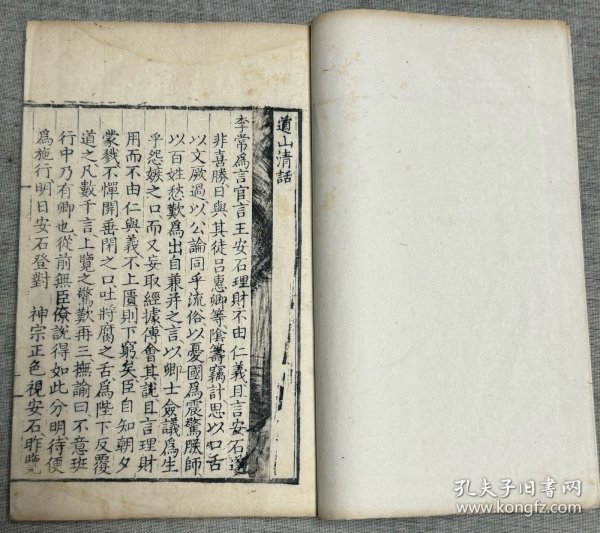 道山清話
李常爲言官言王安石理財不由仁義且言安石遂
非喜勝日與其徒呂惠卿等陰籌竊計思以口舌
以文厥過以公論同乎流俗以憂國爲震驚朕師
以百姓愁歎爲出自兼并之言以卿士僉議爲生
乎怨嫉之口而又妄取經據傳會其說且言理財
用而不由仁與義不上匱則下窮矣臣自知朝夕
蒙戮不憚開垂閉之口吐將腐之舌爲陛下反覆
道之凡數千言上覽之驚歎再三撫諭曰不意班
行中乃有卿也從前無臣僚說得如此分明待便
爲施行明日安石登對 神宗正色視安石昨覽
孔夫子旧书网
www.kongfz.com